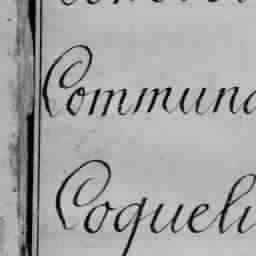 Communa
Coqueli